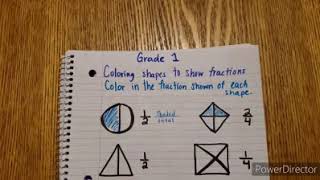 Grade 1
Coloring shapes to show fractions
Color in the fraction shown of each
shape.
1/2
Shaded
2/4
1/2
1/4
PowerDirector